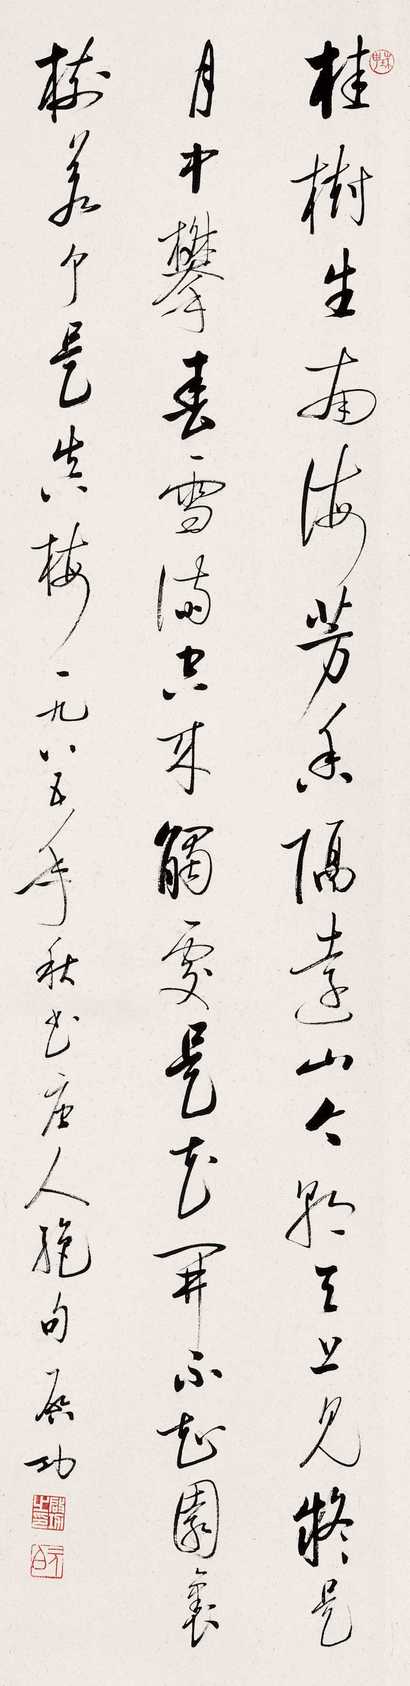 珠申
桂樹生南海芳香隔遠山今朝天上見疑是
月中攀春雪滿空來觸處是花開不知園裏
樹若个是真梅一九八五年秋書唐人絕句啟功
啟功之印
元白